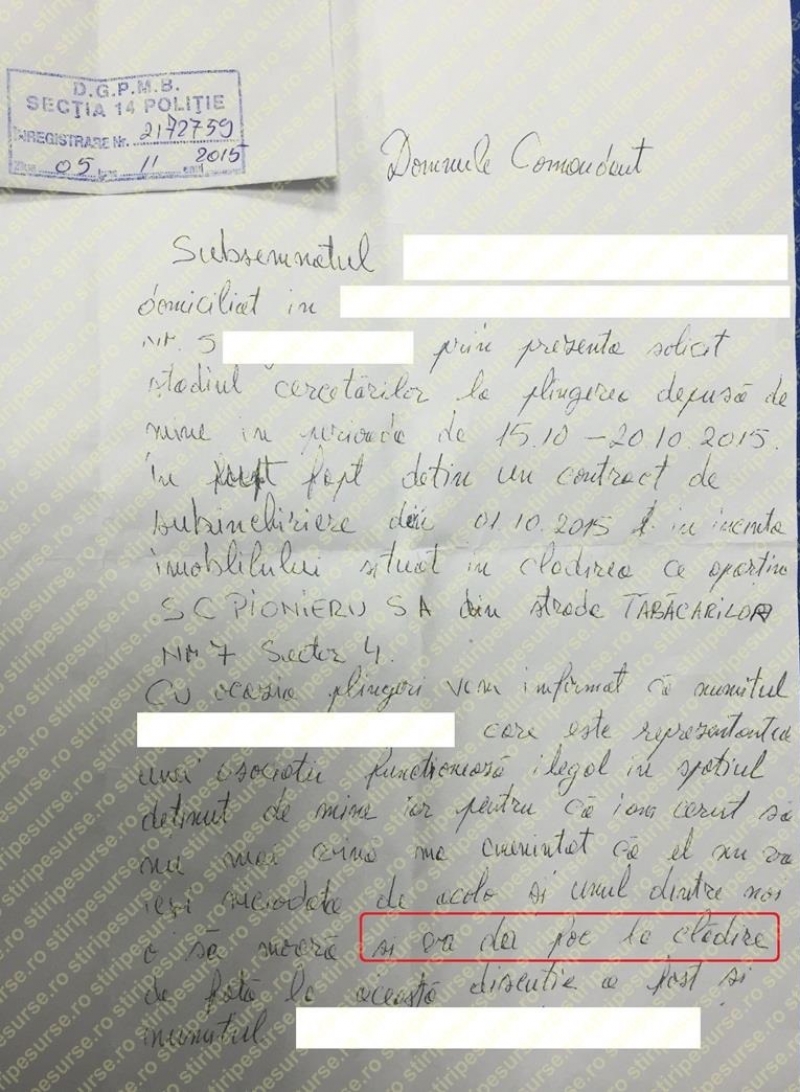 D.G.P.M.B.
SECȚIA 14 POLIȚIE
ÎNREGISTRARE Nr. 2172759
Ziua 05 11 2015
Domnule Comandant
Subsemnatul
domiciliat in
nr. 5
prin prezenta solicit
stadiul cercetărilor la plîngerea depusă de
mine in perioada de 15.10 – 20.10.2015.
În fapt dețin un contract de
subinchiriere din 01.10.2015 in incinta
imobilului situat in clădirea ce aparține
SC PIONIERU SA din strada TĂBĂCARILOR
Nr 7 Sector 4.
Cu ocazia plîngeri v-am informat că numitul
care este reprezentantul
unei asociații funcționează ilegal in spațiul
deținut de mine iar pentru că iam cerut să
nu mai vină ma amenințat că el nu va
ieși niciodată de acolo și unul dintre noi
o să moară și va da foc la clădire
de față la această discuție a fost și
numitul
stiripesurse.ro